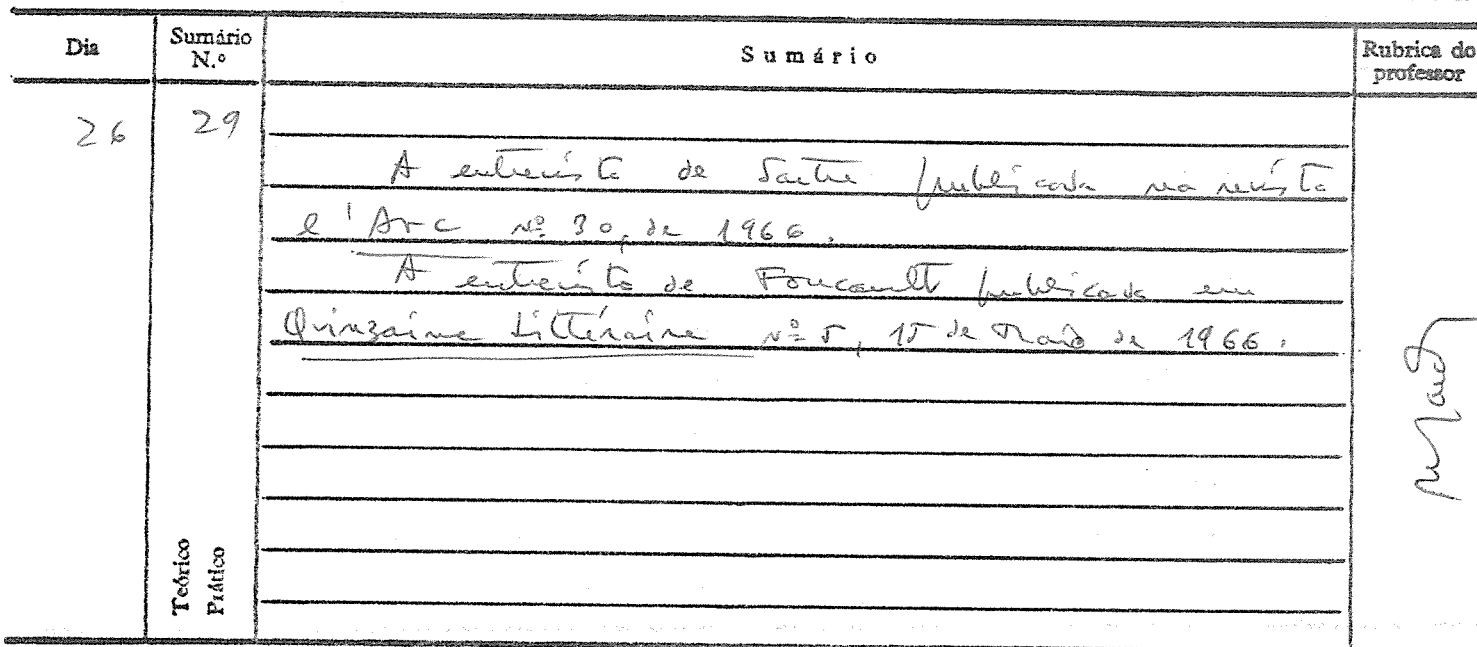 Dia
Sumário N.º
Sumário
Rubrica do professor
26
29
A entrevista de Sartre publicada na revista
l'Arc nº 30, de 1966.
A entrevista de Foucault publicada em
Quinzaine Littéraire nº 5, 15 de Maio de 1966.
Teórico
Prático